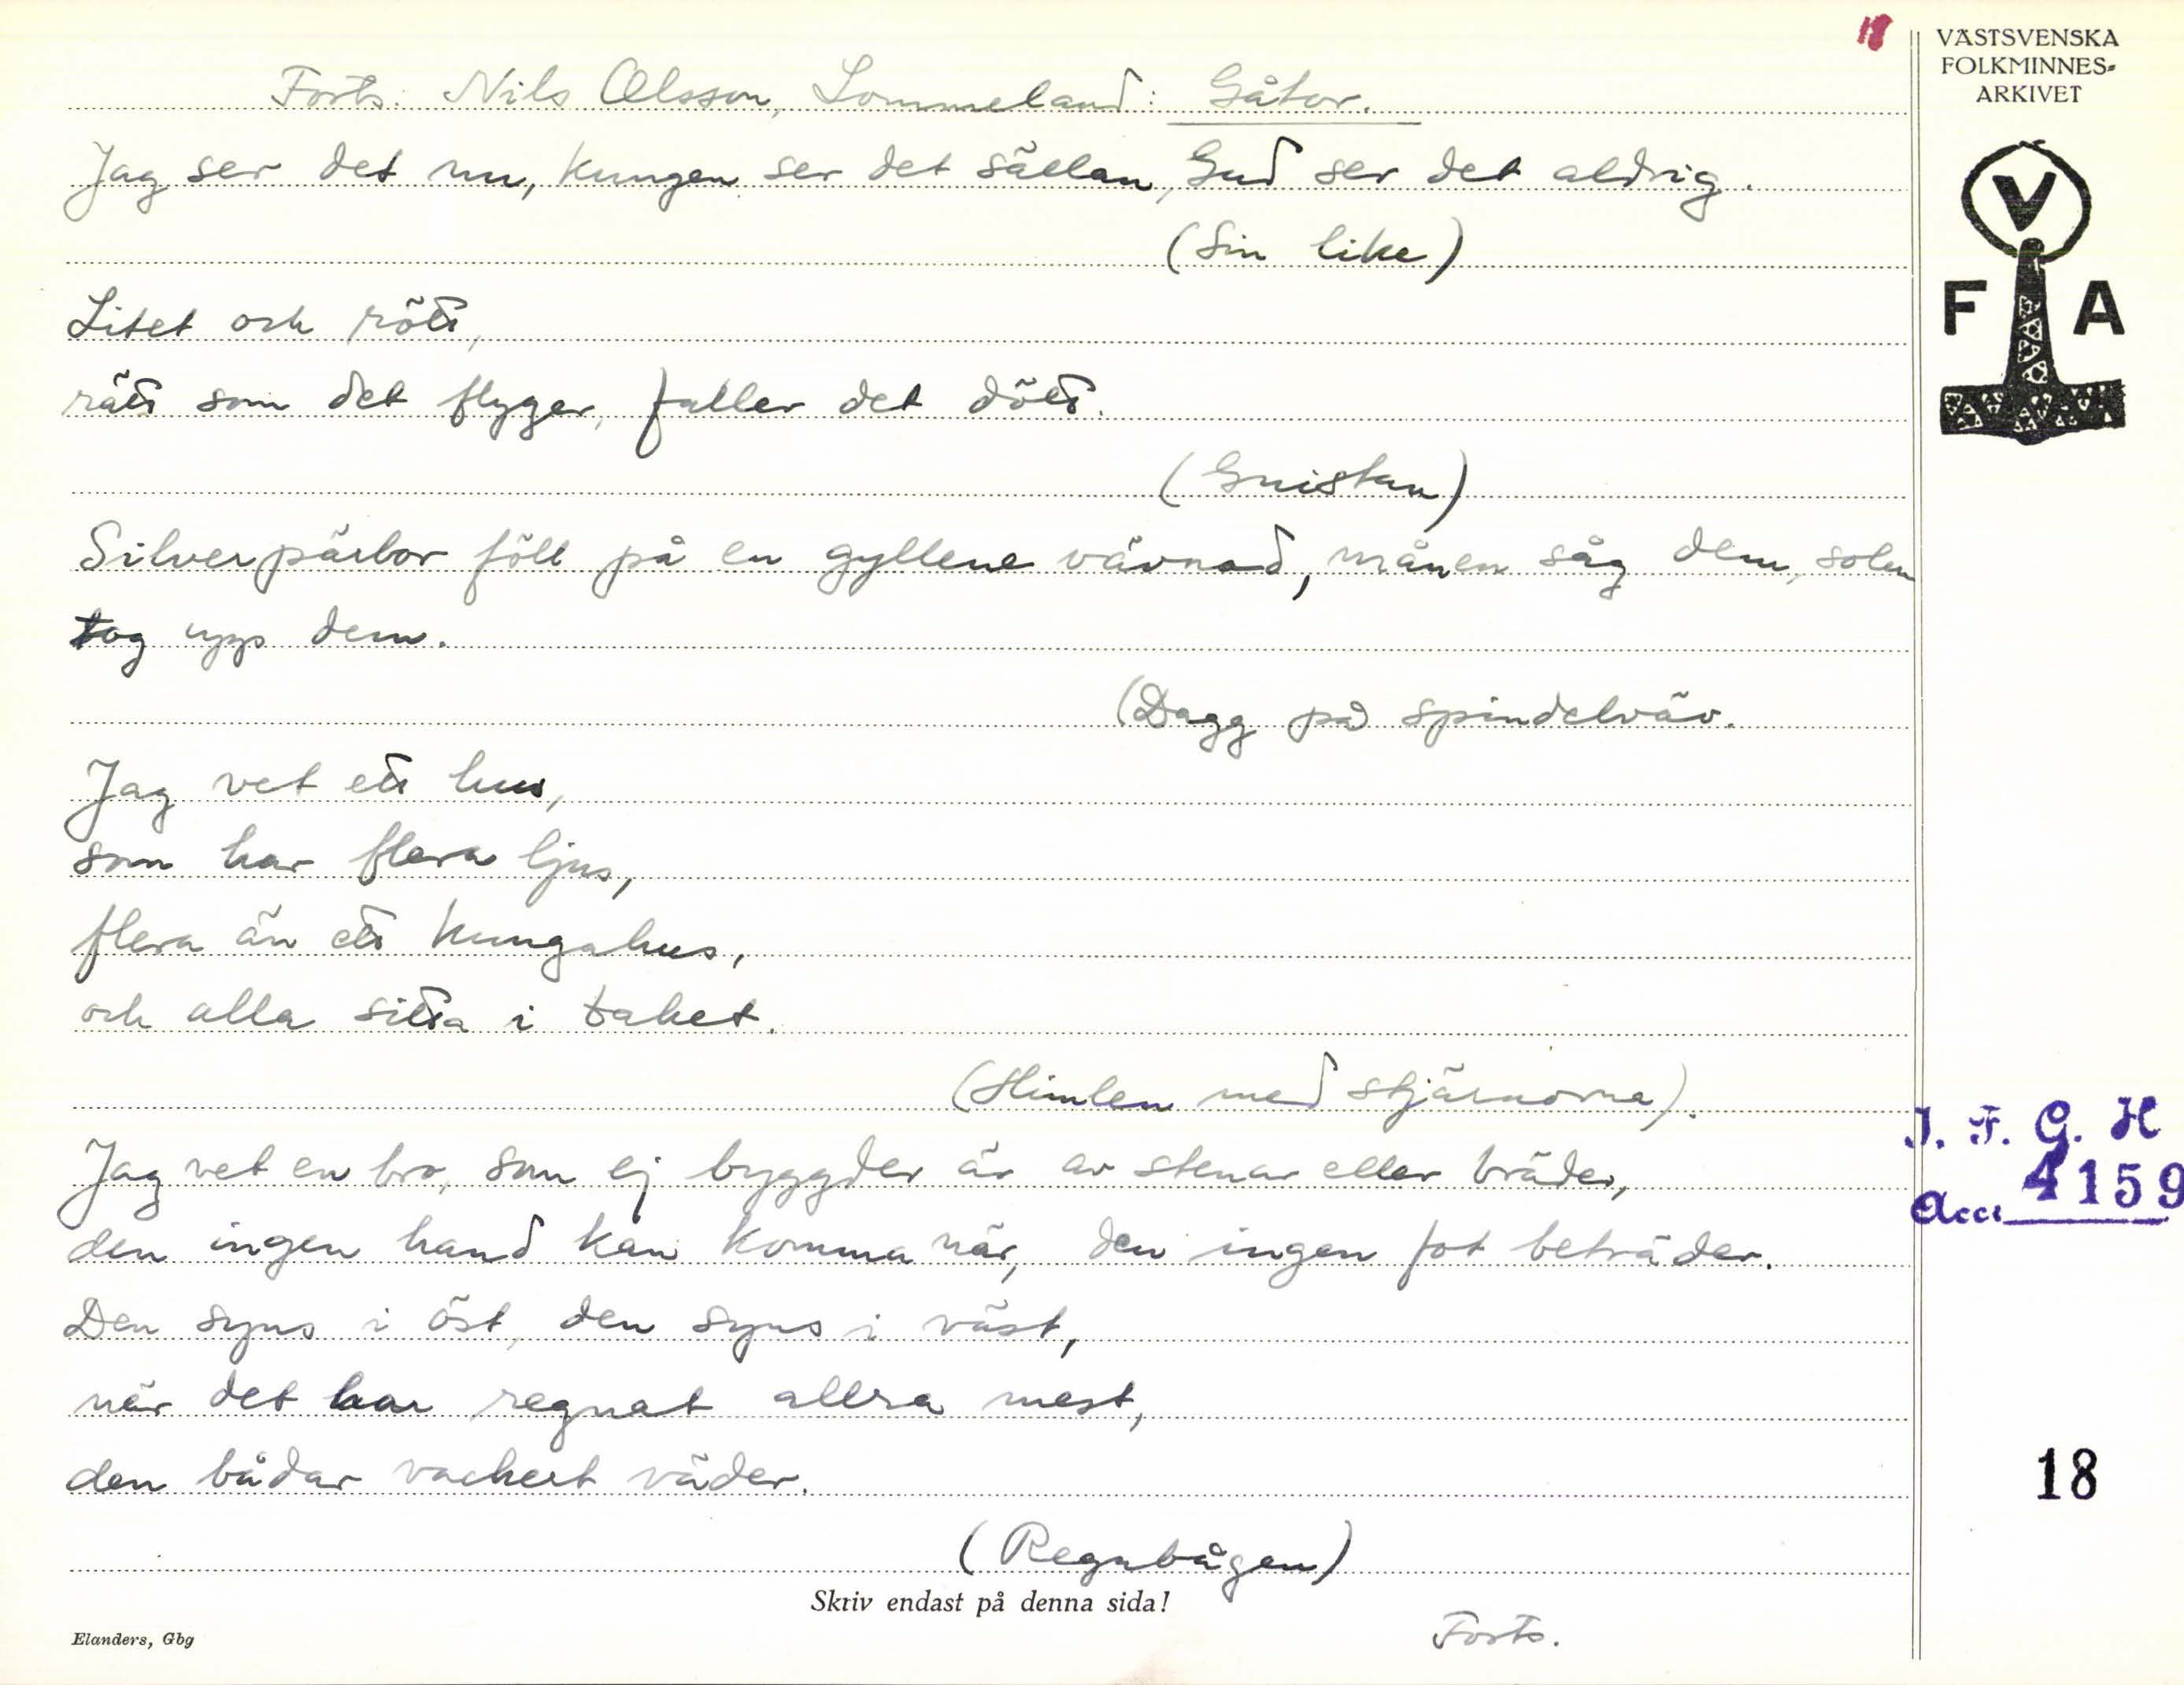 18
VÄSTSVENSKA
FOLKMINNES-
ARKIVET
Forts. Nils Olsson, Lommeland: Gåtor.
Jag ser det nu, kungen ser det sällan, Gud ser det aldrig.
(Sin like)
Litet och rött,
rätt som det flyger, faller det dött.
(Gnistan)
Silverpärlor föll på en gyllene vävnad, månen såg dem, solen
tog upp dem.
(Dagg på spindelväv.
Jag vet ett hus,
som har flera ljus,
flera än ett kungahus,
och alla sitta i taket.
(Himlen med stjärnorna).
Jag vet en bro, som ej byggder är av stenar eller bräder,
den ingen hand kan komma när, den ingen fot beträder.
Den syns i öst, den syns i väst,
när det har regnat allra mest,
den bådar vackert väder.
(Regnbågen)
Skriv endast på denna sida!
Forts.
Elanders, Gbg
V
F A
I. F. G. H
Acc. 4159
18